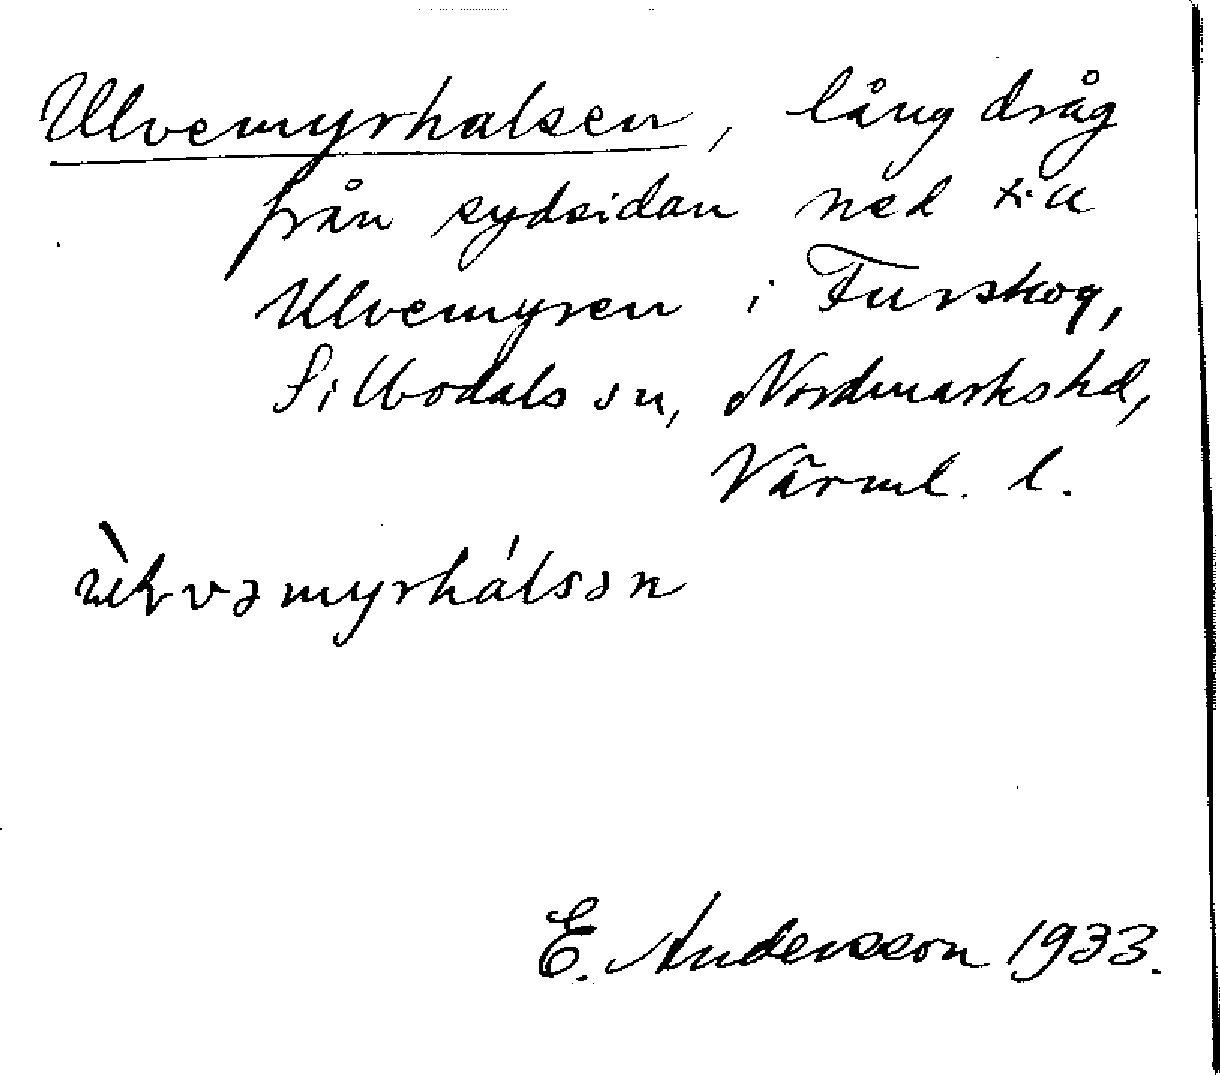 Ulvemyrhalsen, lång dråg
från sydsidan ned till
Ulvemyren i Furskog,
Silbodals sn, Nordmarks hd,
Värml. l.
E. Andersson 1933.